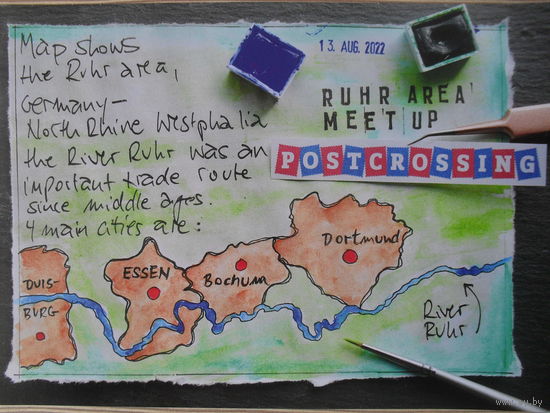 Map shows
the Ruhr area,
Germany –
North Rhine Westphalia
the River Ruhr was an
important trade route
since middle ages.
4 main cities are:
13. AUG. 2022
RUHR AREA
MEET UP
POSTCROSSING
DUIS-
BURG
ESSEN
Bochum
Dortmund
River
Ruhr